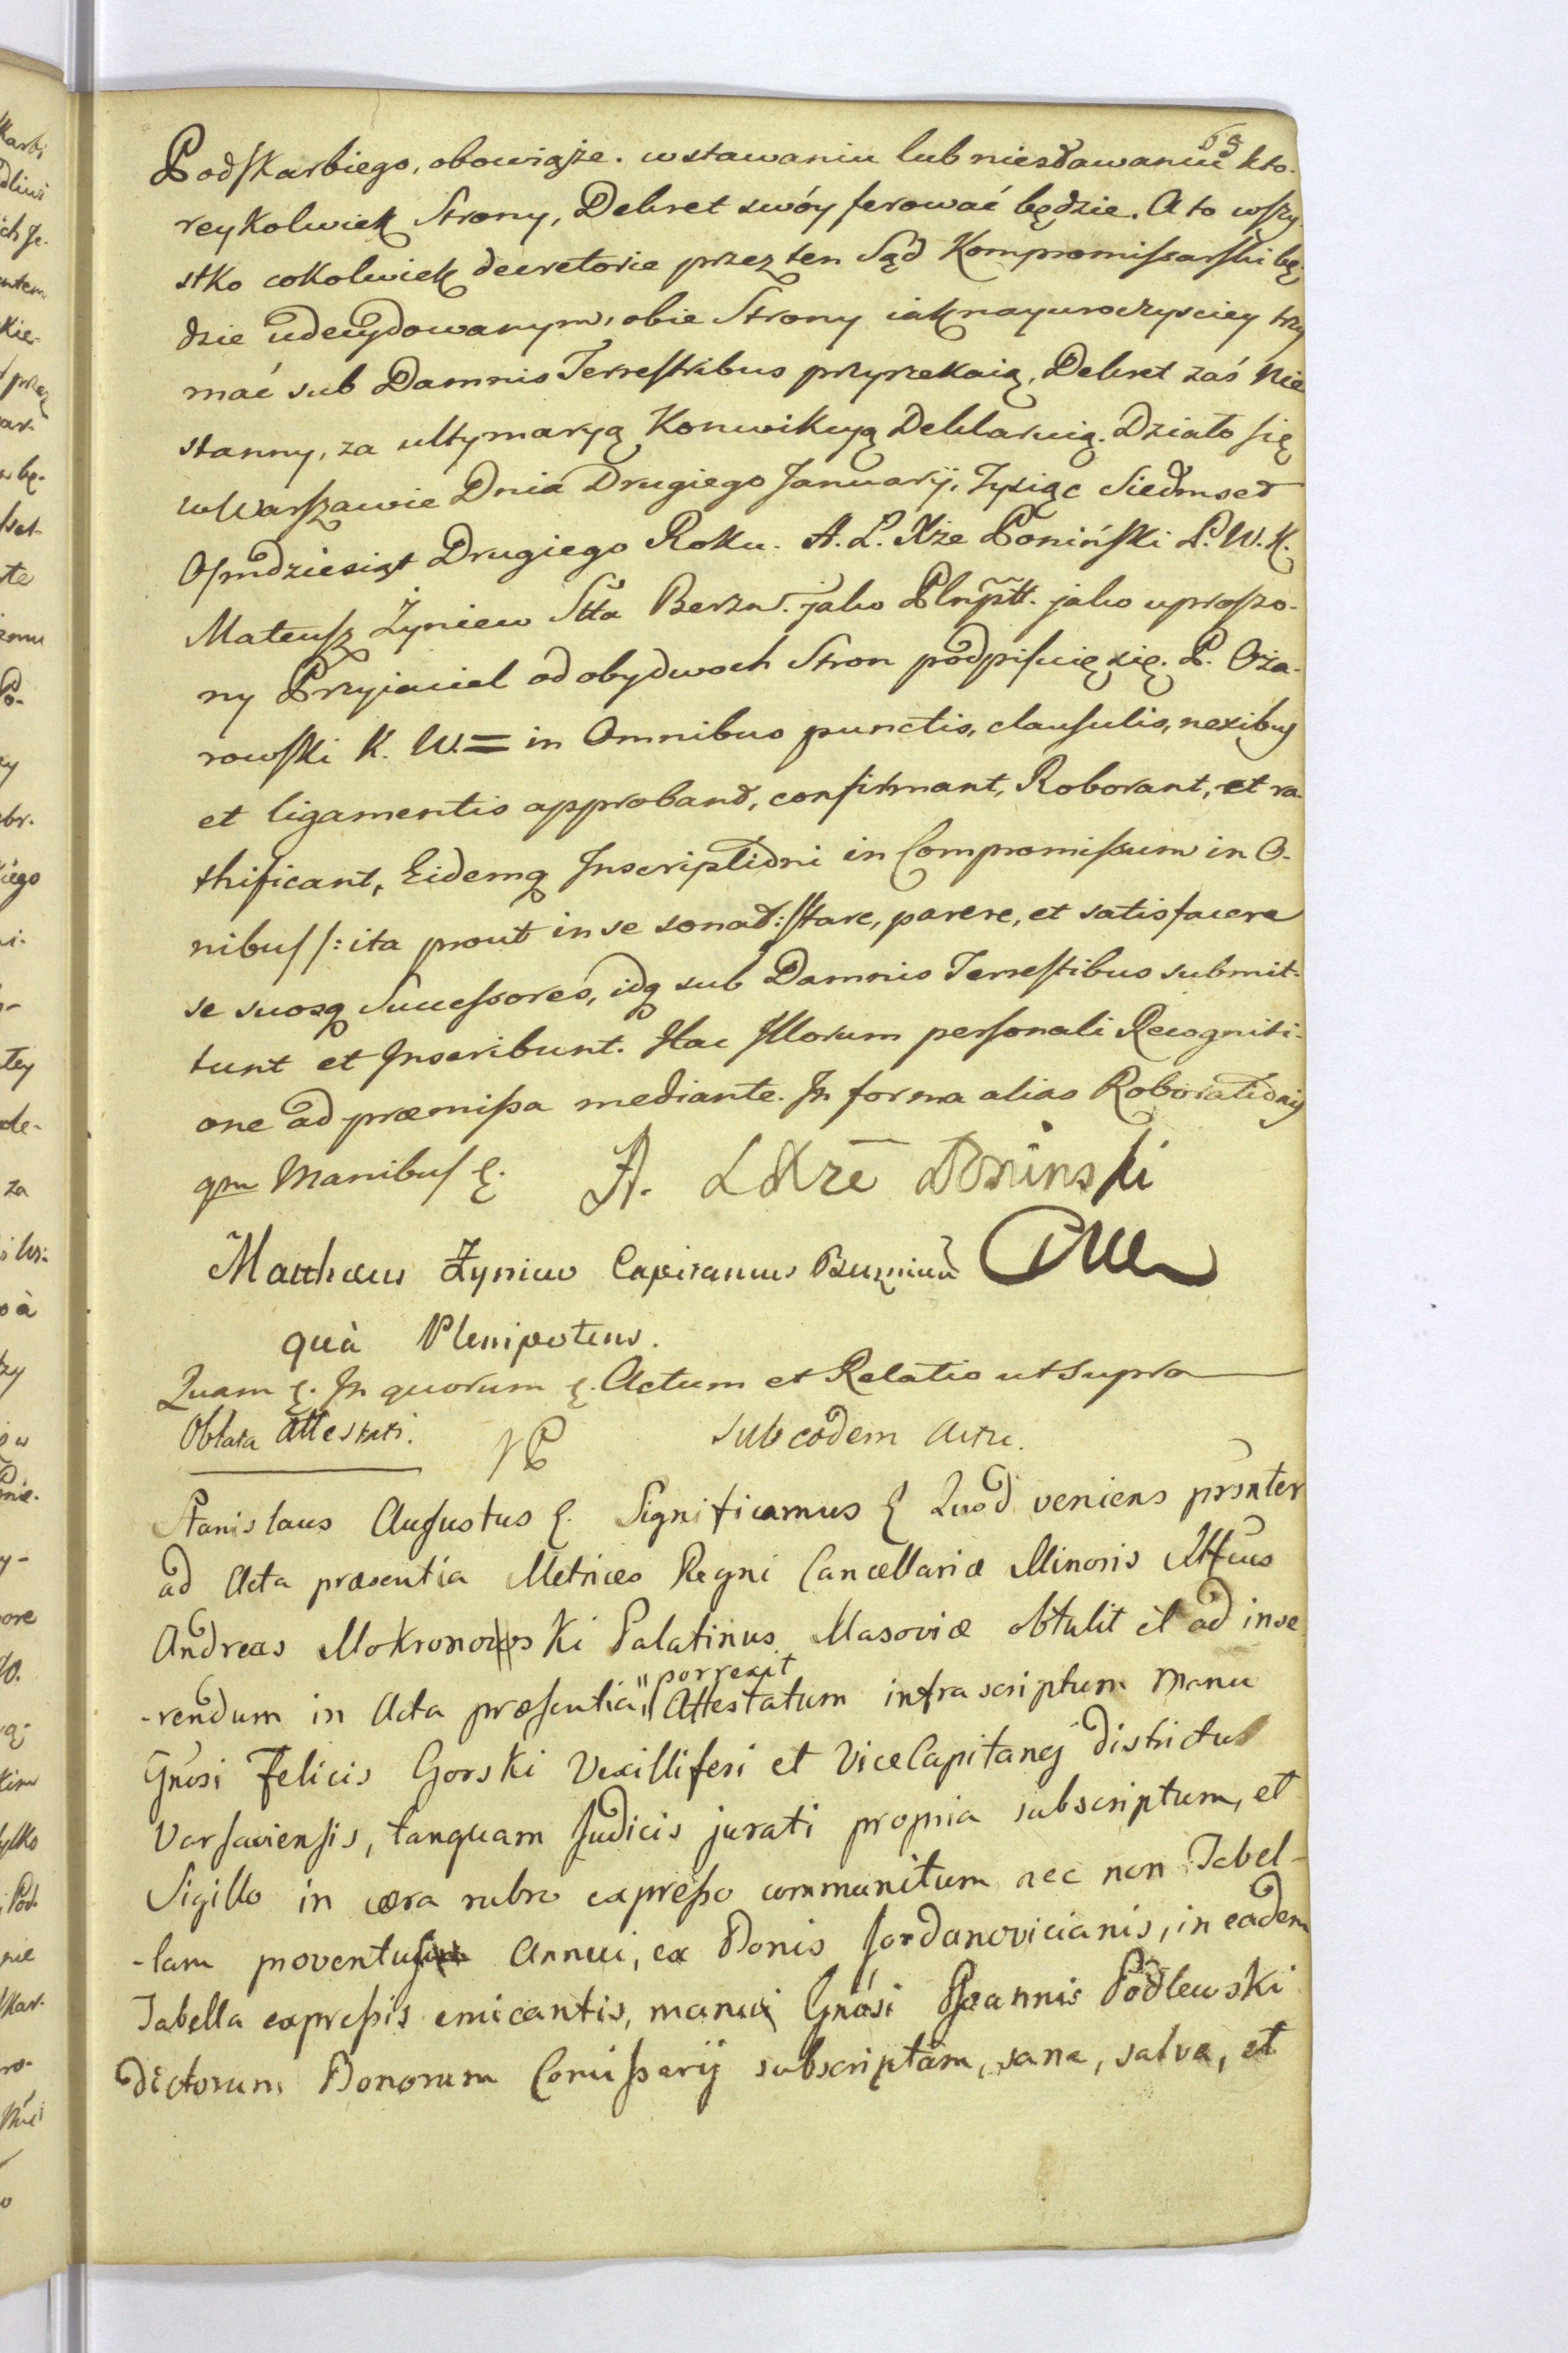 69
Podskarbiego, obowiąże. w stawaniu lub niestawaniu kto-
reykolwiek Strony, Dekret swóy ferować będzie. A to wszy-
stko cokolwiek decretorie przez ten Sąd Kompromissarski bę-
dzie udecydowanym, obie Strony iak nayuroczysciey trzy
mać sub Damnis Terrestribus przyrzekaią, Dekret zaś Nie
stanny, za ultymaryą Konwikcyą Deklaruią. Działo się
w Warszawie Dnia Drugiego Januarij, Tysiąc Siedmset
Osmdziesiąt Drugiego Roku. A. L. Xże Poniński P. W. K.
Mateusz Żyniew Stta Berzn. jako Plnptt. jako uproszo-
ny Przyjaciel od obydwoch Stron podpisuię się. P. Oża-
rowski K. W. = in Omnibus punctis, clausulis, nexibus
et ligamentis approband, confirmant, Roborant, et ra-
thificant, Eidemq Inscriptioni in Compromissum in O-
nibus /: ita prout in se sonat :/ stare, parere, et satisfacere
se suosq Successores, idq sub Damnis Terrestibus submit-
tunt et Inscribunt. Hac Illorum personali Recogniti-
one ad præmissa mediante. In forma alias Roborationis
qm Manibus &. A. L Xże Poninski
Matthæus Żyniew Capitaneus Berznicen
quà Plenipotens.
Quam &. In quorum &. Actum et Relatio ut supra
Oblata Attestati. sub eodem Actu.
Stanislaus Augustus &. Significamus & Quod veniens prsnter
ad Acta præsentia Metrices Regni Cancellariæ Minoris Illtrus
Andreas Mokronowski Palatinus Masoviæ obtulit et ad inse
porrexit
-rendum in Acta præsentia Attestatum infrascriptum Manu
Gnosi Felicis Gorski Vexilliferi et ViceCapitanej districtus
Varsaviensis, tanquam Judicis jurati propria subscriptum, et
Sigillo in cera rubro expresso communitum nec non Tabel-
-lam proventus Annui, ex Bonis Jordanovicianis, in eadem
Tabella expressis emicantis, manu Gnosi Joannis Podlewski
dictorum Bonorum Comissarij subscriptam, sana, salva, et